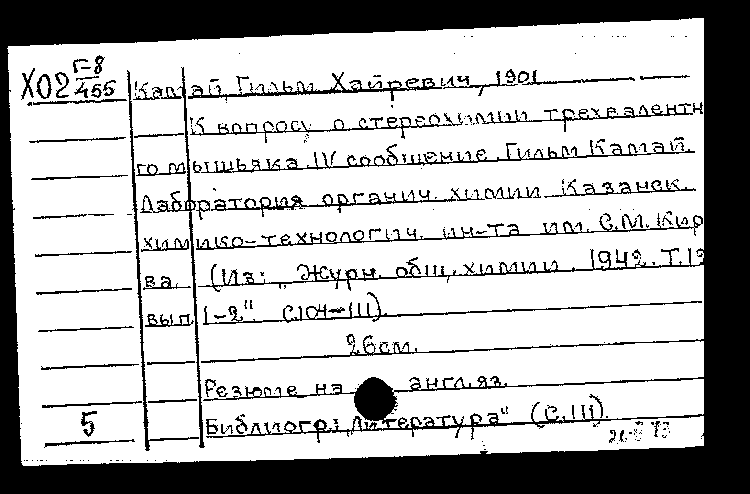 Х02 Г-8
455 Камай, Гильм Хайревич, 1901
К вопросу о стереохимии трехвалентн
го мышьяка IV сообщение. Гильм Камай.
Лаборатория органич. химии Казанск.
химико-технологич. ин-та им. С.М. Кир
ва. (Из: „Журн. общ. химии. 1942. Т.12
вып. 1-2". С.104-111).
26см.
Резюме на англ.яз.
5 Библиогр: „Литература" (с.111).